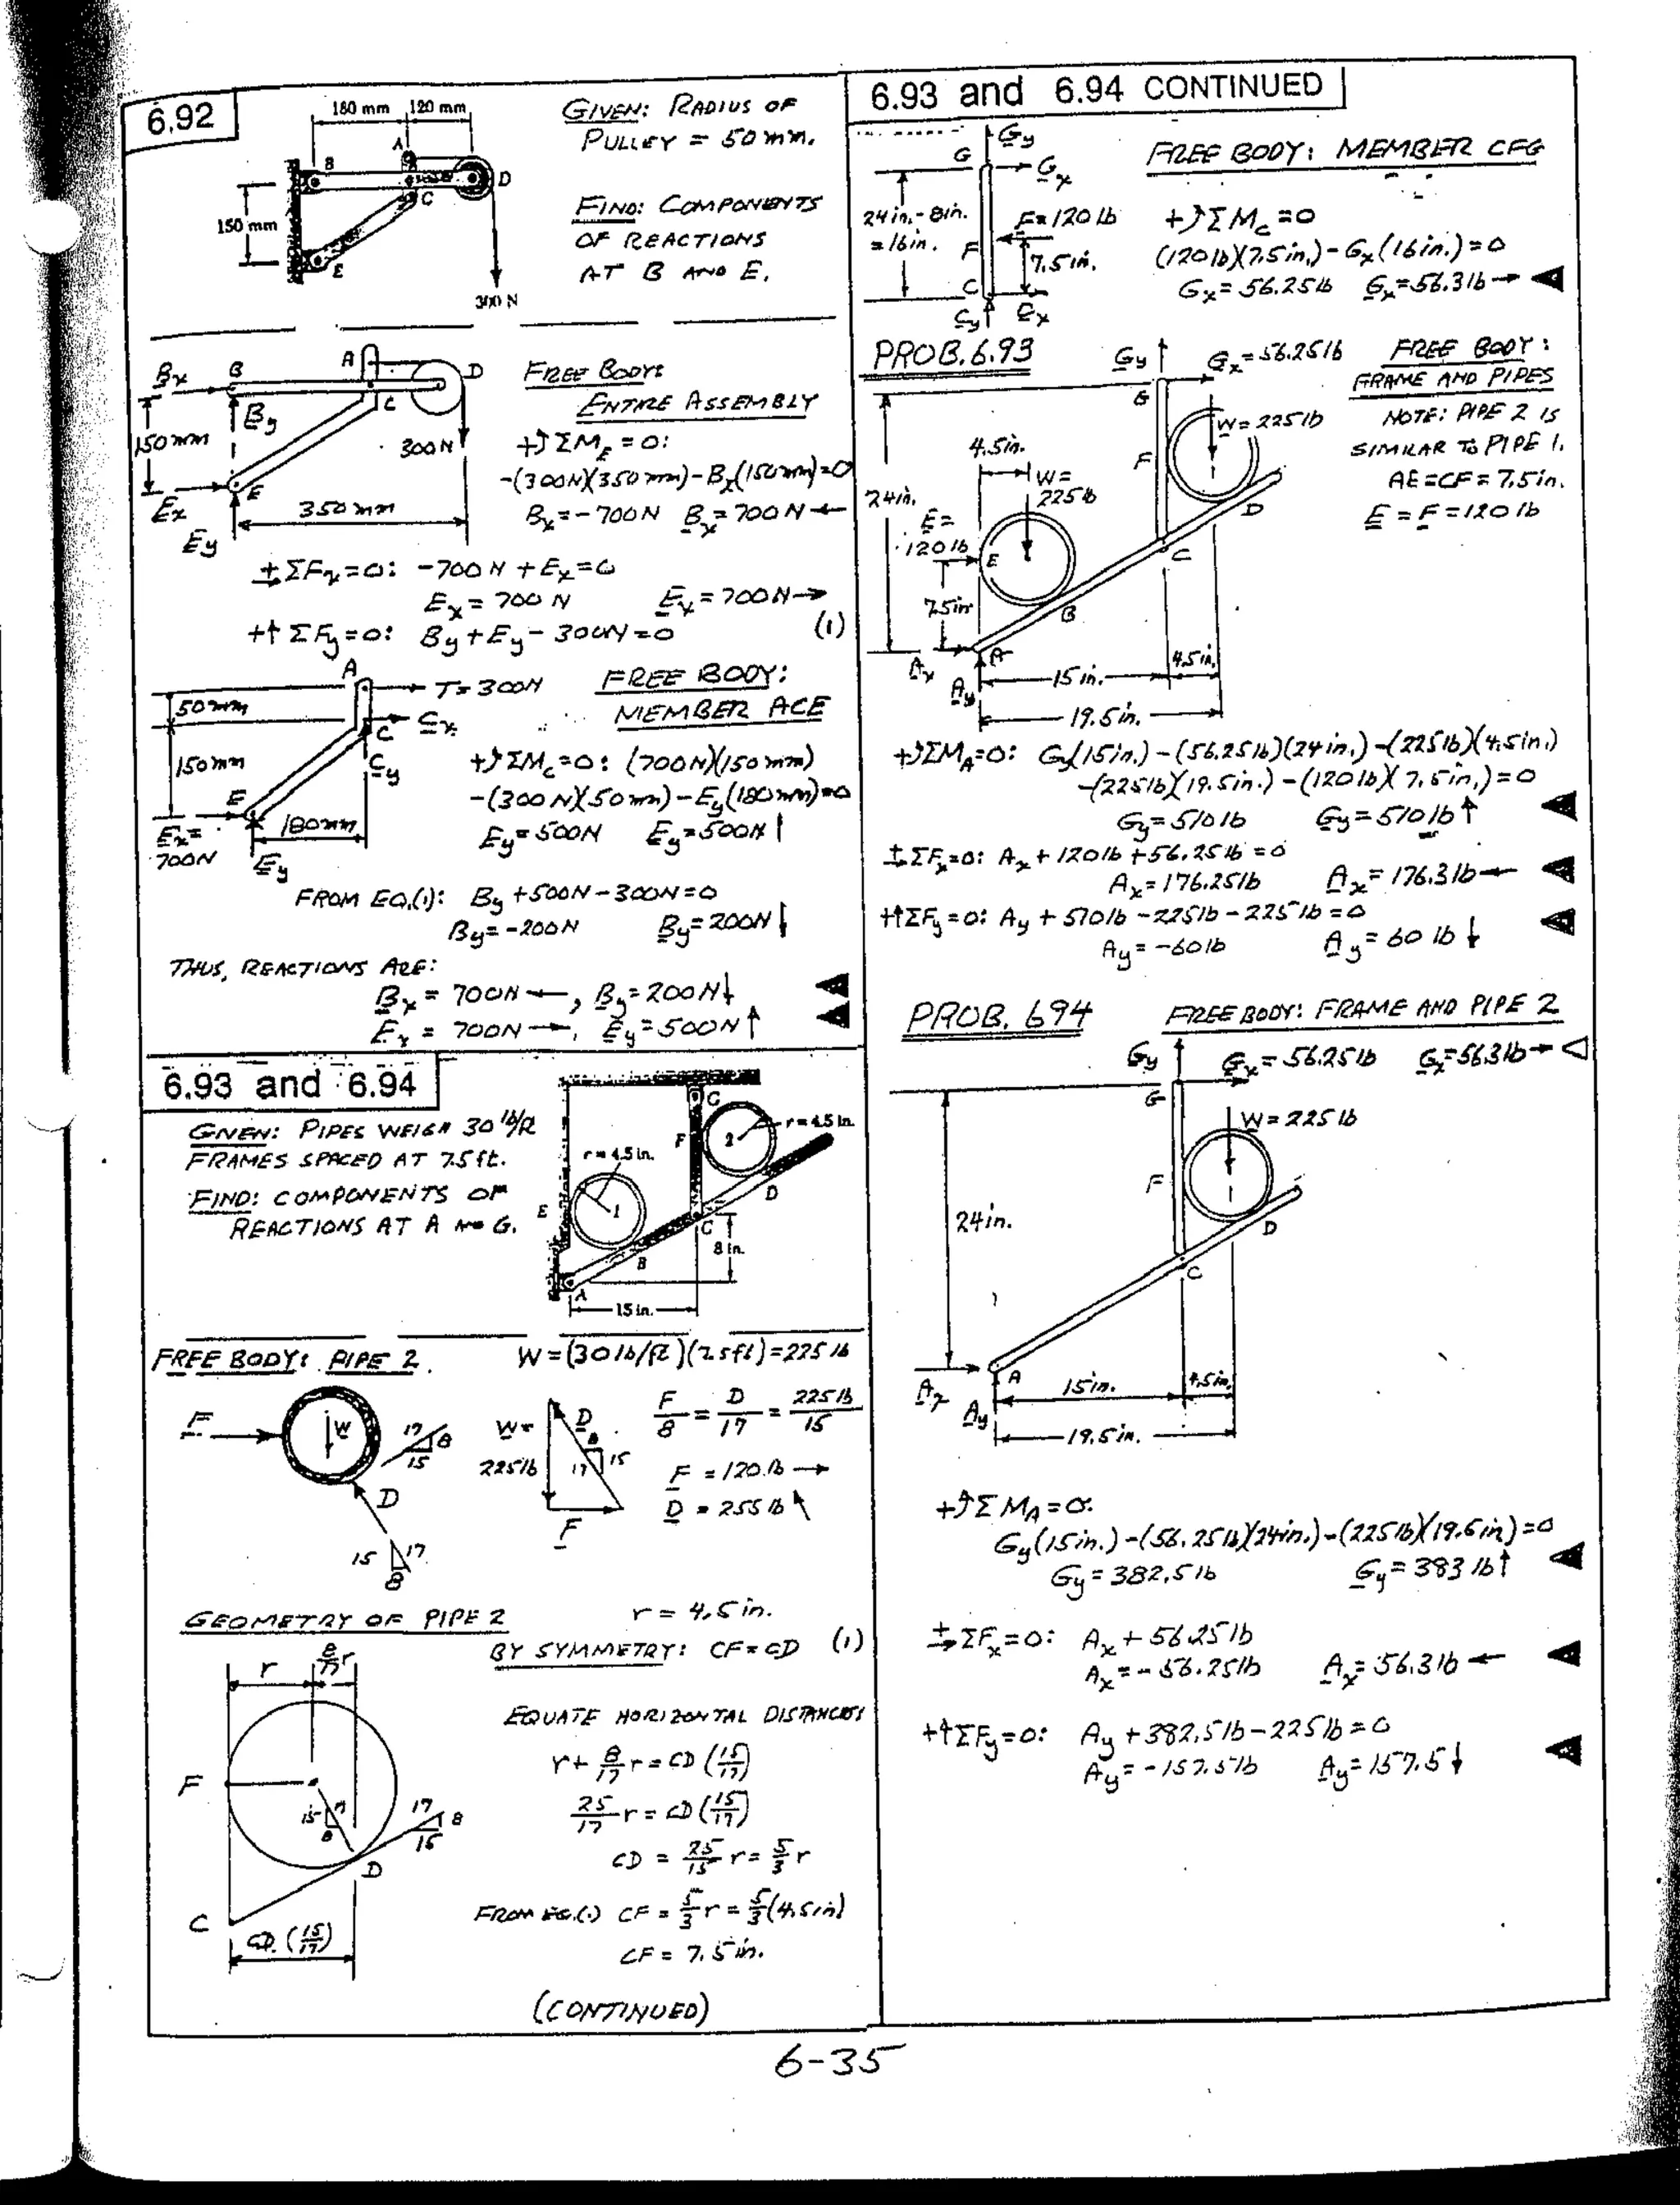 6.92
180 mm 120 mm
A
B
D
C
150 mm
E
300 N
GIVEN: RADIUS OF
PULLEY = 50 mm.
FIND: COMPONENTS
OF REACTIONS
AT B AND E.
Bx B A D
By C
150 mm
300N
Ex E
350 mm
Ey
FREE BODY:
ENTIRE ASSEMBLY
+↺ΣM_E = 0:
-(300N)(350 mm) - Bx(150mm)=0
Bx = -700N Bx = 700N ←
+→ ΣFx = 0: -700 N + Ex = 0
Ex = 700 N Ex = 700N →
+↑ ΣFy = 0: By + Ey - 300N = 0 (1)
A
T = 300N
50 mm
Cx
C
150 mm
Cy
E
Ex =
700N
180mm
Ey
FREE BODY:
MEMBER ACE
+↺ΣMc = 0: (700N)(150 mm)
-(300 N)(50 mm) - Ey(180mm)=0
Ey = 500N Ey = 500N ↑
FROM EQ.(1): By + 500N - 300N = 0
By = -200N By = 200N ↓
THUS, REACTIONS ARE:
Bx = 700N ←, By = 200N ↓
Ex = 700N →, Ey = 500N ↑
6.93 and 6.94
GIVEN: PIPES WEIGH 30 lb/ft
FRAMES SPACED AT 7.5 ft.
FIND: COMPONENTS OF
REACTIONS AT A AND G.
G
r = 4.5 in.
F 2
r = 4.5 in.
D
E 1
C
8 in.
B
A
15 in.
FREE BODY: PIPE 2. W = (30 lb/ft)(7.5 ft) = 225 lb
F W 17 8 15
D
15 17
8
W =
225 lb
D 8 15 17
F
F/8 = D/17 = 225 lb/15
F = 120 lb →
D = 255 lb ↖
GEOMETRY OF PIPE 2 r = 4.5 in.
BY SYMMETRY: CF = CD (1)
r 8/17 r
F
15 17 8
17 8 15
D
C
CD (15/17)
EQUATE HORIZONTAL DISTANCES
r + 8/17 r = CD (15/17)
25/17 r = CD (15/17)
CD = 25/15 r = 5/3 r
FROM EQ.(1) CF = 5/3 r = 5/3 (4.5in)
CF = 7.5 in.
(CONTINUED)
6.93 and 6.94 CONTINUED
Gy
G Gx
24 in. - 8 in.
= 16 in.
F = 120 lb
F
7.5 in.
C
Cy Cx
FREE BODY: MEMBER CFG
+↺ΣMc = 0
(120 lb)(7.5 in.) - Gx(16 in.) = 0
Gx = 56.25 lb Gx = 56.3 lb →
PROB. 6.93
FREE BODY:
FRAME AND PIPES
NOTE: PIPE 2 IS
SIMILAR TO PIPE 1.
AE = CF = 7.5 in.
E = F = 120 lb
Gy Gx = 56.25 lb
G
W = 225 lb
4.5 in.
W =
225 lb
F
24 in.
E =
120 lb
D
E C
7.5 in
B
Ax A
Ay
15 in. 4.5 in.
19.5 in.
+↺ΣM_A = 0: Gy(15 in.) - (56.25 lb)(24 in.) - (225 lb)(4.5 in.)
-(225 lb)(19.5 in.) - (120 lb)(7.5 in.) = 0
Gy = 510 lb Gy = 510 lb ↑
+→ ΣFx = 0: Ax + 120 lb + 56.25 lb = 0
Ax = 176.25 lb Ax = 176.3 lb ←
+↑ΣFy = 0: Ay + 510 lb - 225 lb - 225 lb = 0
Ay = -60 lb Ay = 60 lb ↓
PROB. 694 FREE BODY: FRAME AND PIPE 2
Gy Gx = 56.25 lb Gx = 56.3 lb →
G
W = 225 lb
F
24 in.
D
C
A
Ax
Ay
15 in. 4.5 in.
19.5 in.
+↺ΣM_A = 0:
Gy(15 in.) - (56.25 lb)(24 in.) - (225 lb)(19.5 in) = 0
Gy = 382.5 lb Gy = 383 lb ↑
+→ ΣFx = 0: Ax + 56.25 lb
Ax = -56.25 lb Ax = 56.3 lb ←
+↑ΣFy = 0: Ay + 382.5 lb - 225 lb = 0
Ay = -157.5 lb Ay = 157.5 ↓
6-35